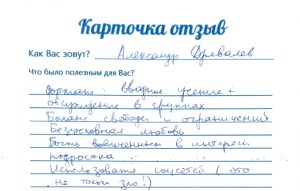 Карточка отзыв
Как Вас зовут? Александр Древалев
Что было полезным для Вас?
формат: вводное учение +
обсуждение в группах
Баланс свободы и ограничений
Безусловная любовь
Быть вовлеченным в интересы
подростка
Использовать соцсети (это
не только зло!)